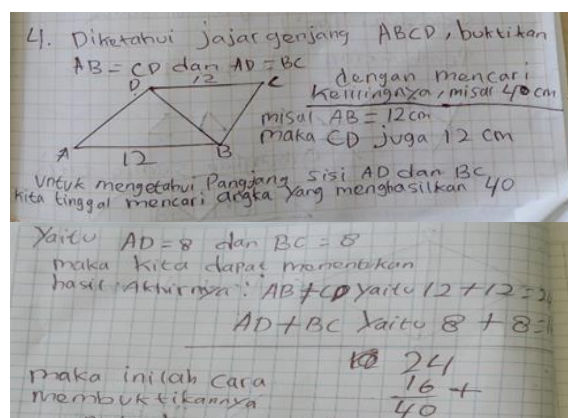 4. Diketahui jajar genjang ABCD, buktikan
AB = CD dan AD = BC
dengan mencari
kelilingnya, misal 40 cm
D 12 C
misal AB = 12 cm
maka CD juga 12 cm
A 12 B
Untuk mengetahui Panjang sisi AD dan BC
kita tinggal mencari angka yang menghasilkan 40
Yaitu AD = 8 dan BC = 8
maka kita dapat menentukan
hasil Akhirnya : AB + CD yaitu 12 + 12 = 24
AD + BC Yaitu 8 + 8 =
24
maka inilah cara 16 +
membuktikannya 40